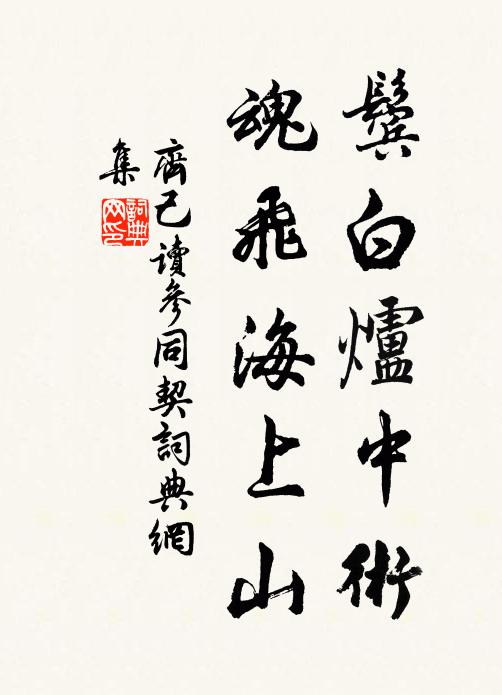 鬢白爐中術
魂飛海上山
齊己讀參同契詞典網
集
詞典網印